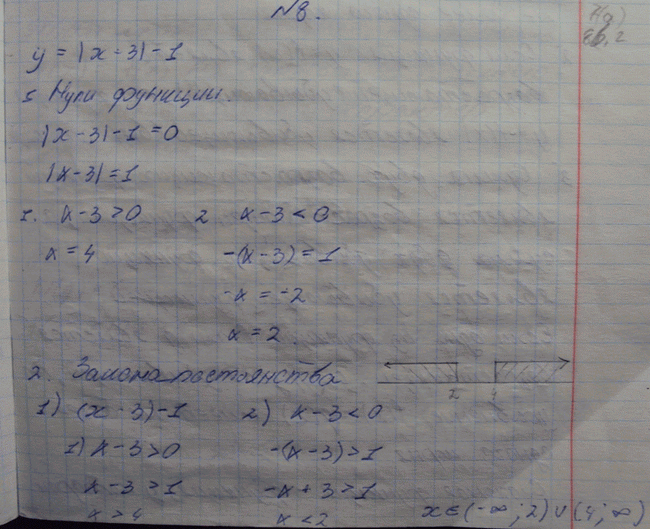 N8.
y = |x - 3| - 1
1. Нули функции.
|x - 3| - 1 = 0
|x - 3| = 1
1. x - 3 > 0 2 x - 3 < 0
x = 4 -(x - 3) = 1
-x = -2
x = 2
2. постоянства
2 4
1) (x - 3) - 1 2) x - 3 < 0
1) x - 3 > 0 -(x - 3) > 1
x - 3 > 1 -x + 3 > 1
x > 4 x < 2 x ∈ (-∞; 2) ∪ (4; ∞)